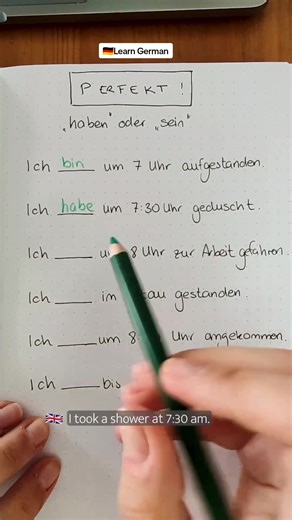 🇩🇪Learn German
PERFEKT!
„haben" oder „sein"
Ich bin um 7 Uhr aufgestanden.
Ich habe um 7:30 Uhr geduscht.
Ich ____ um 8 Uhr zur Arbeit gefahren.
Ich ____ im gestanden.
Ich ____ um 8 Uhr angekommen.
Ich ____ bis
🇬🇧 I took a shower at 7:30 am.